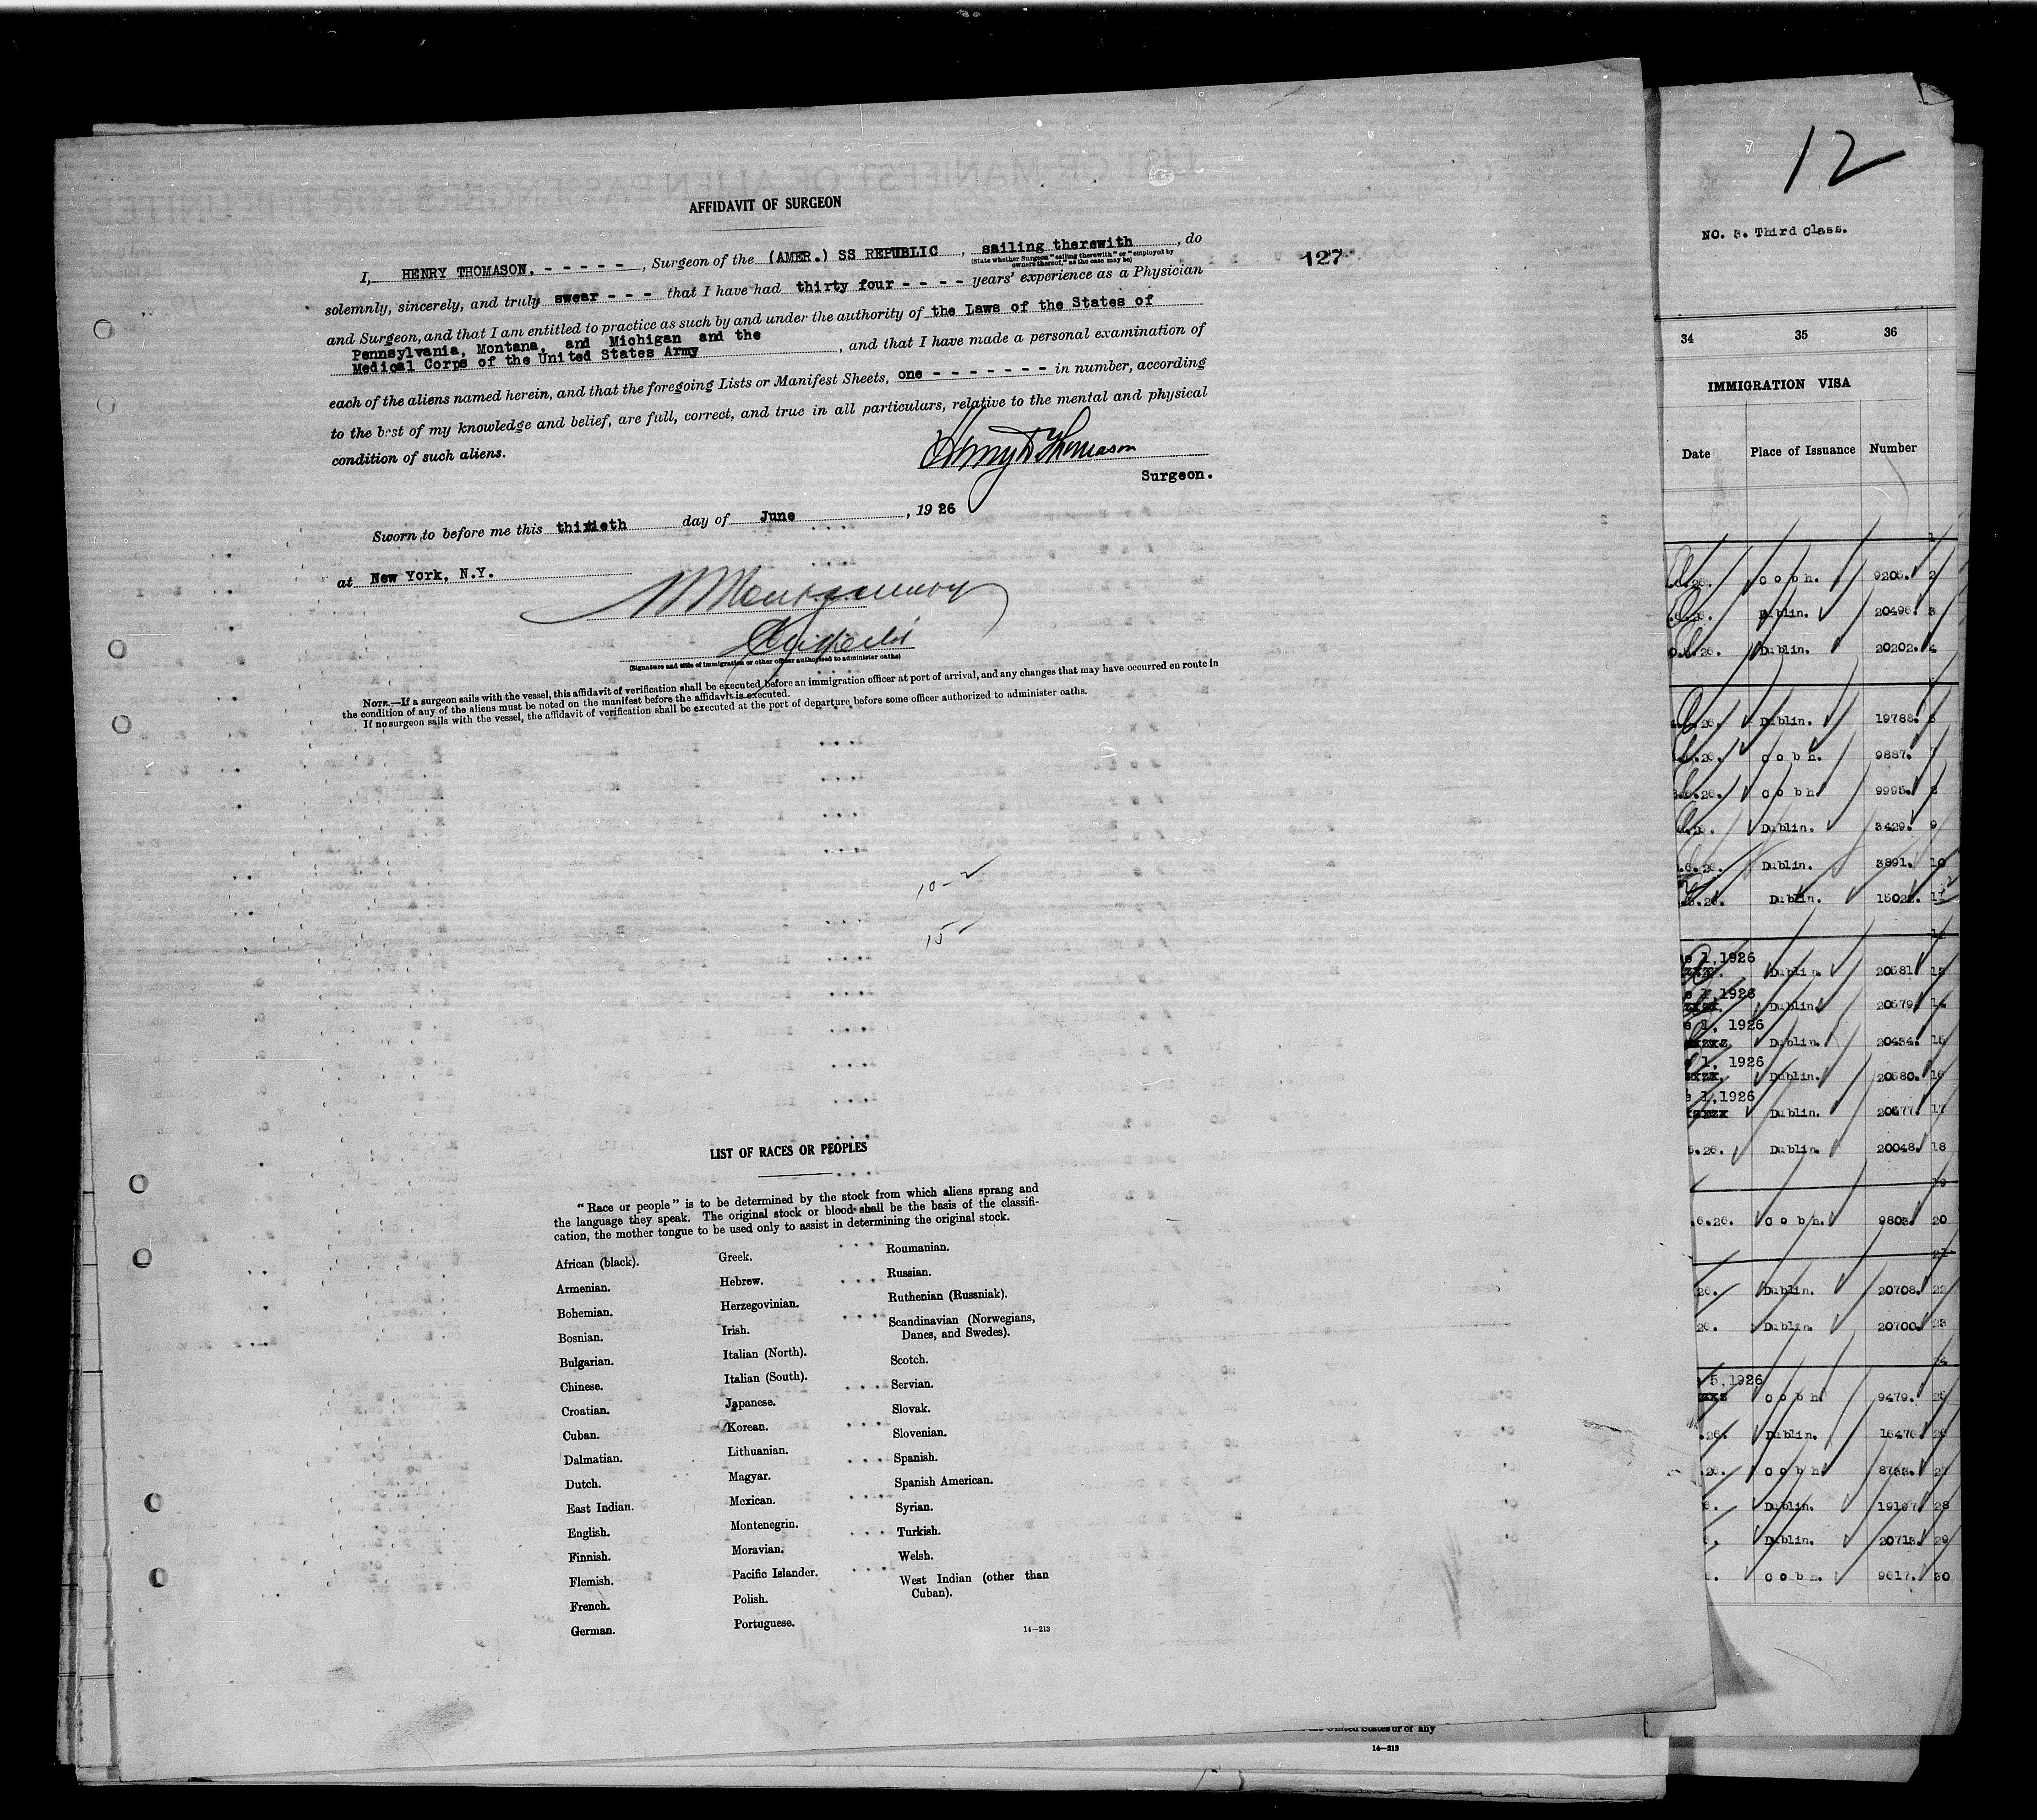 AFFIDAVIT OF SURGEON
I, HENRY THOMASON. - - - - - , Surgeon of the (AMER.) SS REPUBLIC , sailing therewith , do
(State whether Surgeon "sailing therewith" or "employed by
owners thereof," as the case may be)
127
solemnly, sincerely, and truly swear - - - that I have had thirty four - - - - years' experience as a Physician
and Surgeon, and that I am entitled to practice as such by and under the authority of the Laws of the States of
Pennsylvania, Montana, and Michigan and the
Medical Corps of the United States Army , and that I have made a personal examination of
each of the aliens named herein, and that the foregoing Lists or Manifest Sheets, one - - - - - - - in number, according
to the best of my knowledge and belief, are full, correct, and true in all particulars, relative to the mental and physical
condition of such aliens.
Henry D Thomason
Surgeon.
Sworn to before me this thirtieth day of June , 1926
at New York, N.Y.
(Signature and title of immigration or other officer authorized to administer oaths)
NOTE.—If a surgeon sails with the vessel, this affidavit of verification shall be executed before an immigration officer at port of arrival, and any changes that may have occurred en route in
the condition of any of the aliens must be noted on the manifest before the affidavit is executed.
If no surgeon sails with the vessel, the affidavit of verification shall be executed at the port of departure before some officer authorized to administer oaths.
10-2
15
LIST OF RACES OR PEOPLES
"Race or people" is to be determined by the stock from which aliens sprang and
the language they speak. The original stock or blood shall be the basis of the classifi-
cation, the mother tongue to be used only to assist in determining the original stock.
African (black).
Armenian.
Bohemian.
Bosnian.
Bulgarian.
Chinese.
Croatian.
Cuban.
Dalmatian.
Dutch.
East Indian.
English.
Finnish.
Flemish.
French.
German.
Greek.
Hebrew.
Herzegovinian.
Irish.
Italian (North).
Italian (South).
Japanese.
Korean.
Lithuanian.
Magyar.
Mexican.
Montenegrin.
Moravian.
Pacific Islander.
Polish.
Portuguese.
Roumanian.
Russian.
Ruthenian (Russniak).
Scandinavian (Norwegians,
Danes, and Swedes).
Scotch.
Servian.
Slovak.
Slovenian.
Spanish.
Spanish American.
Syrian.
Turkish.
Welsh.
West Indian (other than
Cuban).
14—213
United States or of any
14—213
12
NO. 3. Third Class.
34 35 36
IMMIGRATION VISA
Date Place of Issuance Number
Cobh. 9205. 2
Dublin. 20496. 3
Dublin. 20202. 4
Dublin. 19788.
Cobh. 9887. 7
Cobh 9995. 8
Dublin. 3429. 9
Dublin. 3891. 10
Dublin. 1502 11
1,1926
Dublin. 20581
1,1926
Dublin. 20579 14
1, 1926
Dublin. 20434. 15
1, 1926
Dublin. 20580. 16
1,1926
Dublin. 20577 17
.26. Dublin. 20048. 18
19
.6.26. Cobh. 9803. 20
21
26. Dublin. 20708. 22
26. Dublin. 20700. 23
24
5,1926
Cobh 9479. 25
.26. Dublin. 16476 26
.26. Cobh 8733. 27
Dublin. 19197 28
Dublin. 20713. 29
Cobh. 9617. 30